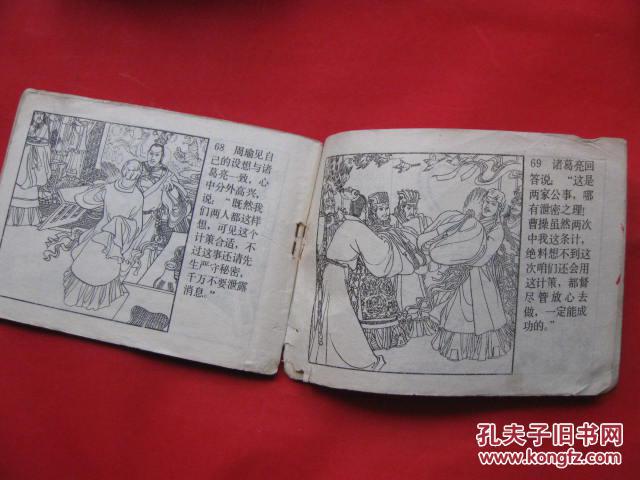 68 周瑜见自
己的设想与诸
葛亮一致，心
中分外高兴，
说：“既然我
们两人都这样
想，可见这个
计策合适，不
过这事还请先
生严守秘密，
千万不要泄露
消息。”
69 诸葛亮回
答说：“这是
两家公事，哪
有泄密之理！
曹操虽然两次
中我这条计，
绝料想不到这
次咱们还会用
这计策，都督
尽管放心去
做，一定能成
功的。”
孔夫子旧书网
www.kongfz.com